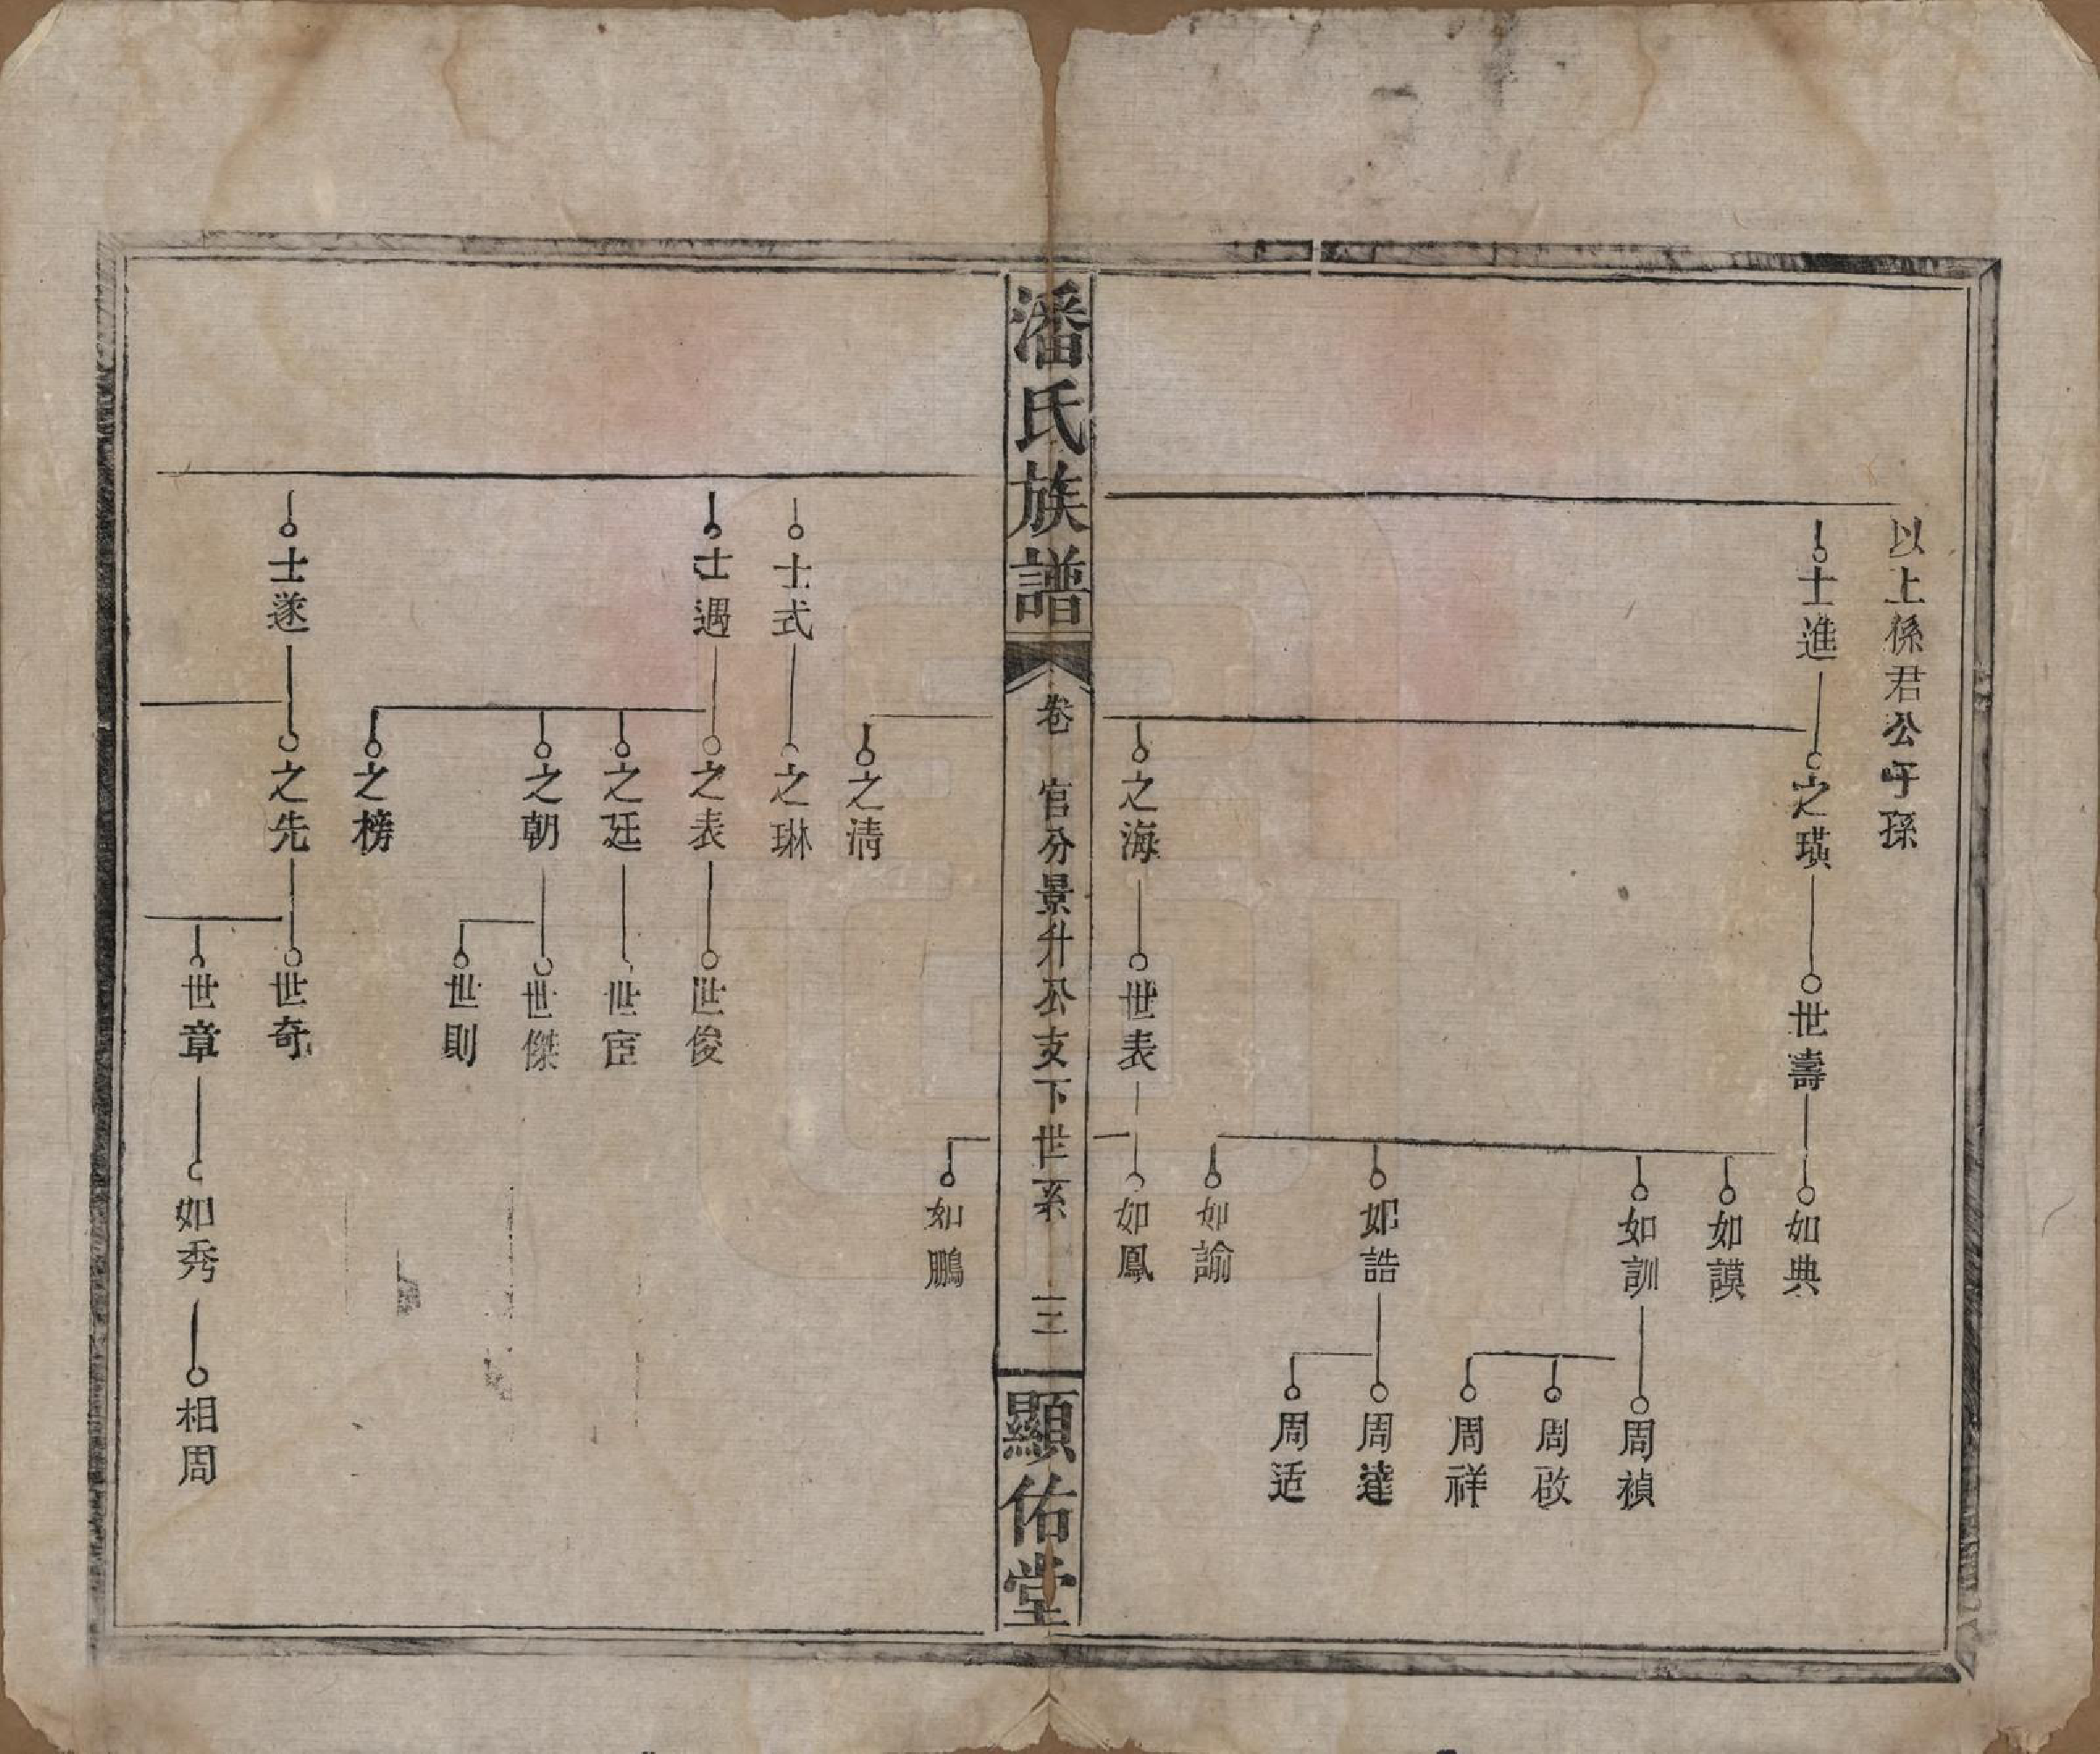 以上係君公吁孫
士進
之璜
世壽
如典
如謨
如訓
周禎
周啟
周祥
如誥
周達
周适
如諭
之海
世表
如鳳
潘氏族譜
卷 官分景升公支下世系 三
顯佑堂
如鵬
之清
士式
之琳
士遇
之表
世俊
之廷
世宦
之朝
世傑
世則
之榜
士遂
之先
世奇
世章
如秀
相周